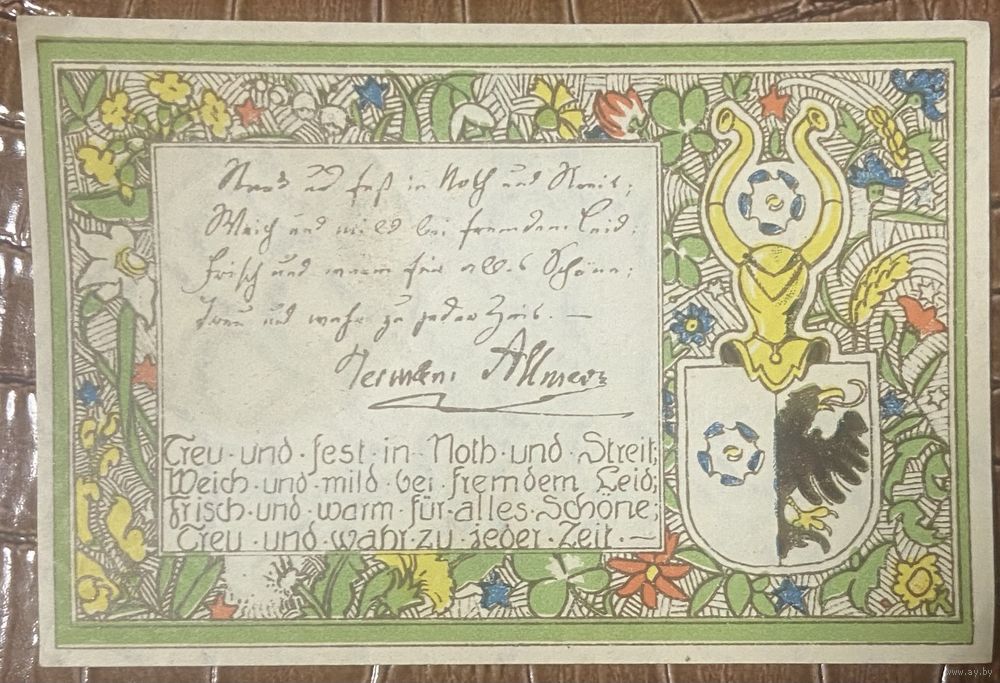 und fest in Noth und Streit;
Weich und mild bei fremdem Leid;
Frisch und warm für alles Schöne;
Treu und wahr zu jeder Zeit. —
Hermann Allmers
Treu·und·fest·in·Noth·und·Streit;
Weich·und·mild·bei·fremdem·Leid;
Frisch·und·warm·für·alles·Schöne;
Treu·und·wahr·zu·jeder·Zeit.—
www.ay.by